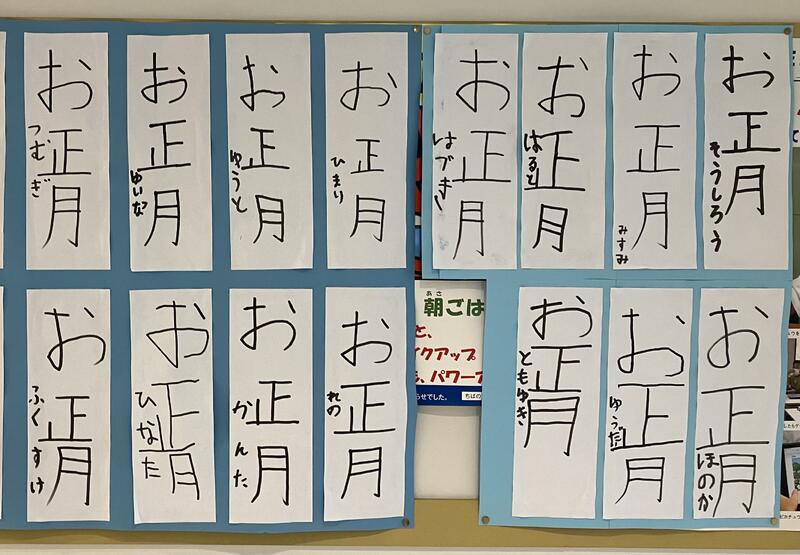 お正月
そうしろう
お正月
みすみ
お正月
はると
お正月
はづき
お正月
ひまり
お正月
ゆうと
お正月
ゆいな
お正月
つむぎ
お正月
ほのか
お正月
ゆうだい
お正月
ともゆき
お正月
れの
お正月
かんた
お正月
ひなた
お正月
ふくすけ
あさ
朝ごは
と、
イクアップ
パワーア
らせでした。
ちばの